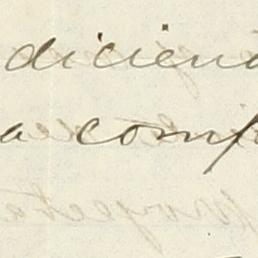 diciend
a comp